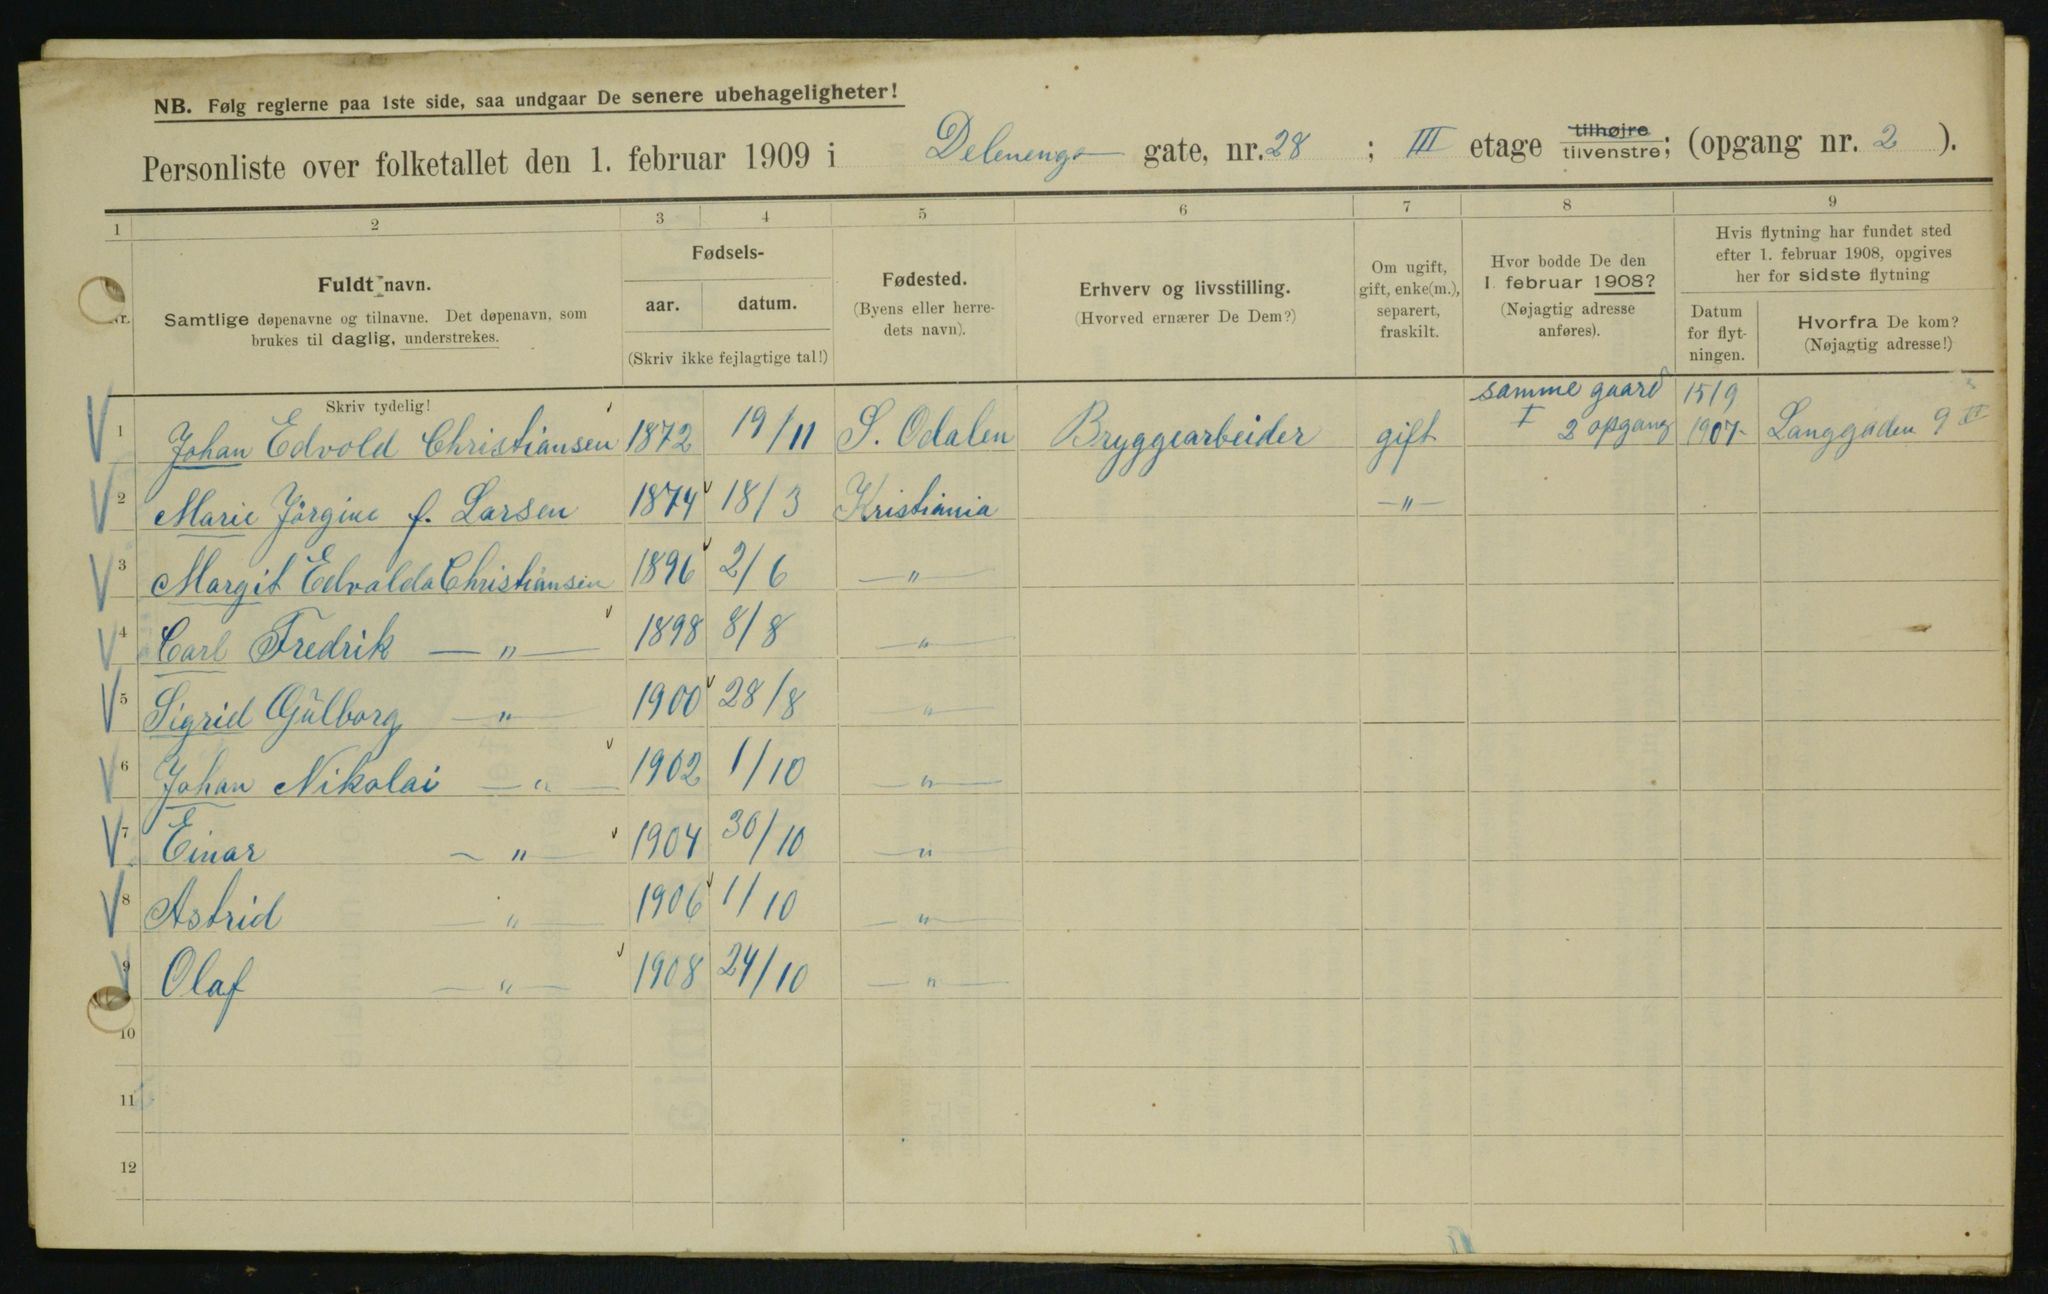 NB. Følg reglerne paa 1ste side, saa undgaar De senere ubehageligheter!
Personliste over folketallet den 1. februar 1909 i Delenenga gate, nr. 28 ; III etage tilhøjre tilvenstre; (opgang nr. 2 ).
1 2 3 4 5 6 7 8 9
Nr.
Fuldt navn.
Samtlige døpenavne og tilnavne. Det døpenavn, som
brukes til daglig, understrekes.
Skriv tydelig!
Fødsels-
aar. datum.
(Skriv ikke fejlagtige tal!)
Fødested.
(Byens eller herre-
dets navn).
Erhverv og livsstilling.
(Hvorved ernærer De Dem?)
Om ugift,
gift, enke(m.),
separert,
fraskilt.
Hvor bodde De den
1. februar 1908?
(Nøjagtig adresse
anføres).
Hvis flytning har fundet sted
efter 1. februar 1908, opgives
her for sidste flytning
Datum
for flyt-
ningen.
Hvorfra De kom?
(Nøjagtig adresse!)
samme gaard 15/9
1 Johan Edvold Christiansen 1872 19/11 S. Odalen Bryggearbeider gift I 2 opgang 1907- Langgaden 9 II
2 Marie Jörgine f. Larsen 1874 18/3 Kristiania —"—
3 Margit Edvalda Christiansen 1896 2/6 —"—
4 Carl Fredrik —"— 1898 8/8 —"—
5 Sigrid Gülborg —"— 1900 28/8 —"—
6 Johan Nikolai —"— 1902 1/10 —"—
7 Einar —"— 1904 30/10 —"—
8 Astrid —"— 1906 1/10 —"—
9 Olaf —"— 1908 24/10 —"—
10
11
12